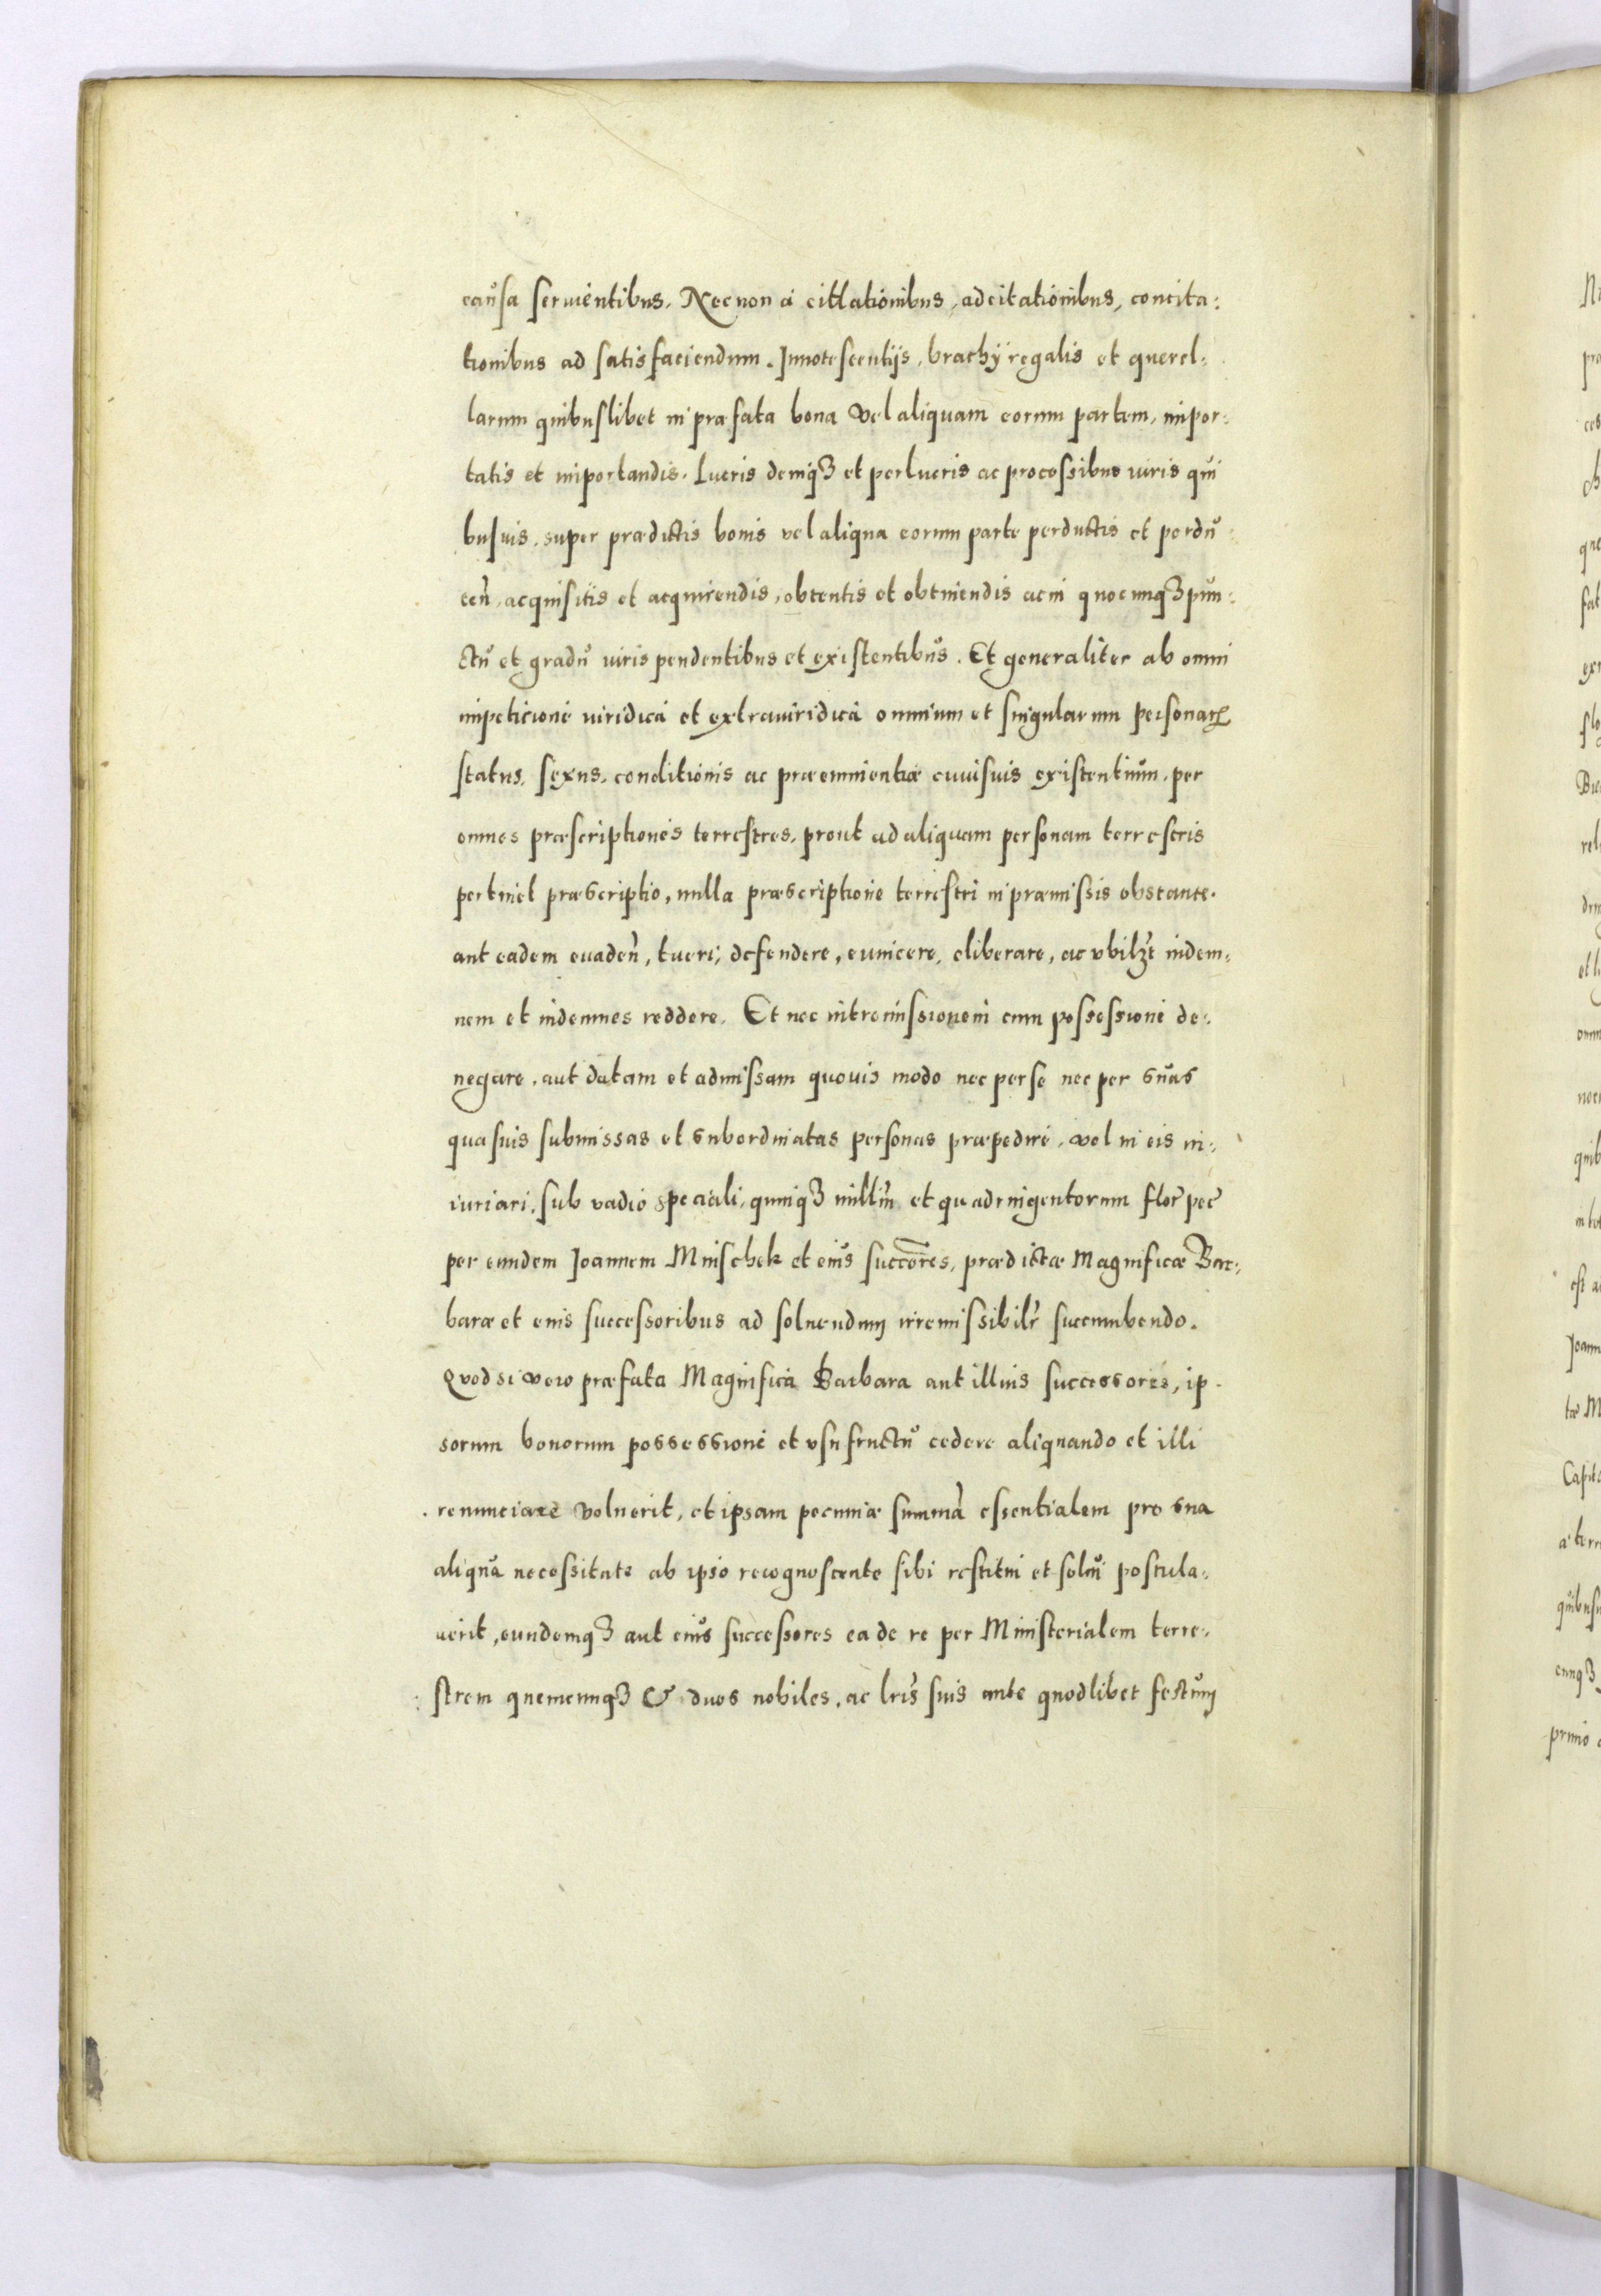 causa seruientibus. Necnon a citlationibus, adcitationibus, concita:
tionibus ad satisfaciendum. Innotescentijs, brachÿ regalis et querel:
larum quibuslibet in præfata bona vel aliquam eorum partem, inpor:
tatis et inportandis. Lucris demqꝫ et perlucris ac processibus iuris qui
busuis, super prædictis bonis vel aliqua eorum parte perductis et perdu
cen̄, acquisitis et acquirendis, obtentis et obtinendis ac in quocunqꝫ pun:
ctu et gradu iuris pendentibus et existentibus. Et generaliter ab omni
inpeticione iuridica et extraiuridica omnium et singularum personaꝝ
status, sexus, conditionis ac præeminentiæ cuiusuis existentium, per
omnes præscriptiones terrestres, prout ad aliquam personam terrestris
pertinet præscriptio, nulla præscriptione terrestri in præmissis obstante.
aut eadem euaden̄, tueri, defendere, euincere, eliberare, ac vbilꝫt indem:
nem et indemnes reddere. Et nec intromissionem cum possessione de:
negare, aut datam et admissam quouis modo nec per se nec per suas
quasuis submissas et subordinatas personas præpedire, vel in eis in:
iuriari, sub vadio speciali, quinqꝫ millin̄ et quadringentorum flor̄ pec̄
per eundem Joannem Mnischek et eius succōres, prædictæ Magnificæ Bar:
baræ et eius successoribus ad soluendum irremissibilr̄ succumbendo.
Quod si vero præfata Magnifica Barbara aut illius successores, ip
sorum bonorum possessione et vsufructu cedere aliquando et illi
renunciare voluerit, et ipsam pecuniæ summā essentialem pro sua
aliqua necessitate ab ipso recognoscente sibi restitui et solui postula:
uerit, eundemqꝫ aut eius successores ea de re per Ministerialem terre:
strem quemcunqꝫ & duos nobiles, ac lr̄is suis ante quodlibet festum